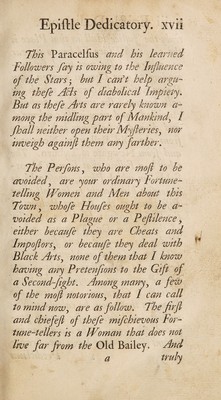 Epiſtle Dedicatory. xvii
This Paracelſus and his learned
Followers ſay is owing to the Influence
of the Stars; but I can't help argu-
ing theſe Acts of diabolical Impiety.
But as theſe Arts are rarely known a-
mong the midling part of Mankind, I
ſhall neither open their Myſteries, nor
inveigh againſt them any farther.
The Perſons, who are moſt to be
avoided, are your ordinary Fortune-
telling Women and Men about this
Town, whoſe Houſes ought to be a-
voided as a Plague or a Peſtilence,
either becauſe they are Cheats and
Impoſtors, or becauſe they deal with
Black Arts, none of them that I know
having any Pretenſions to the Gift of
a Second-ſight. Among many, a few
of the moſt notorious, that I can call
to mind now, are as follow. The firſt
and chiefeſt of theſe miſchievous For-
tune-tellers is a Woman that does not
live far from the Old Bailey. And
a truly